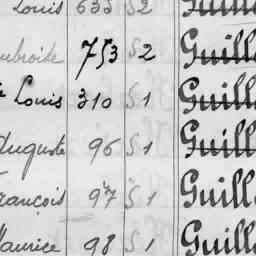 Louis 633 S2 Guill
mbroise 753 S2 Guill
Louis 310 S1 Guill
Auguste 96 S1 Guill
rançois 97 S1 Guill
Maurice 98 S1 Guill